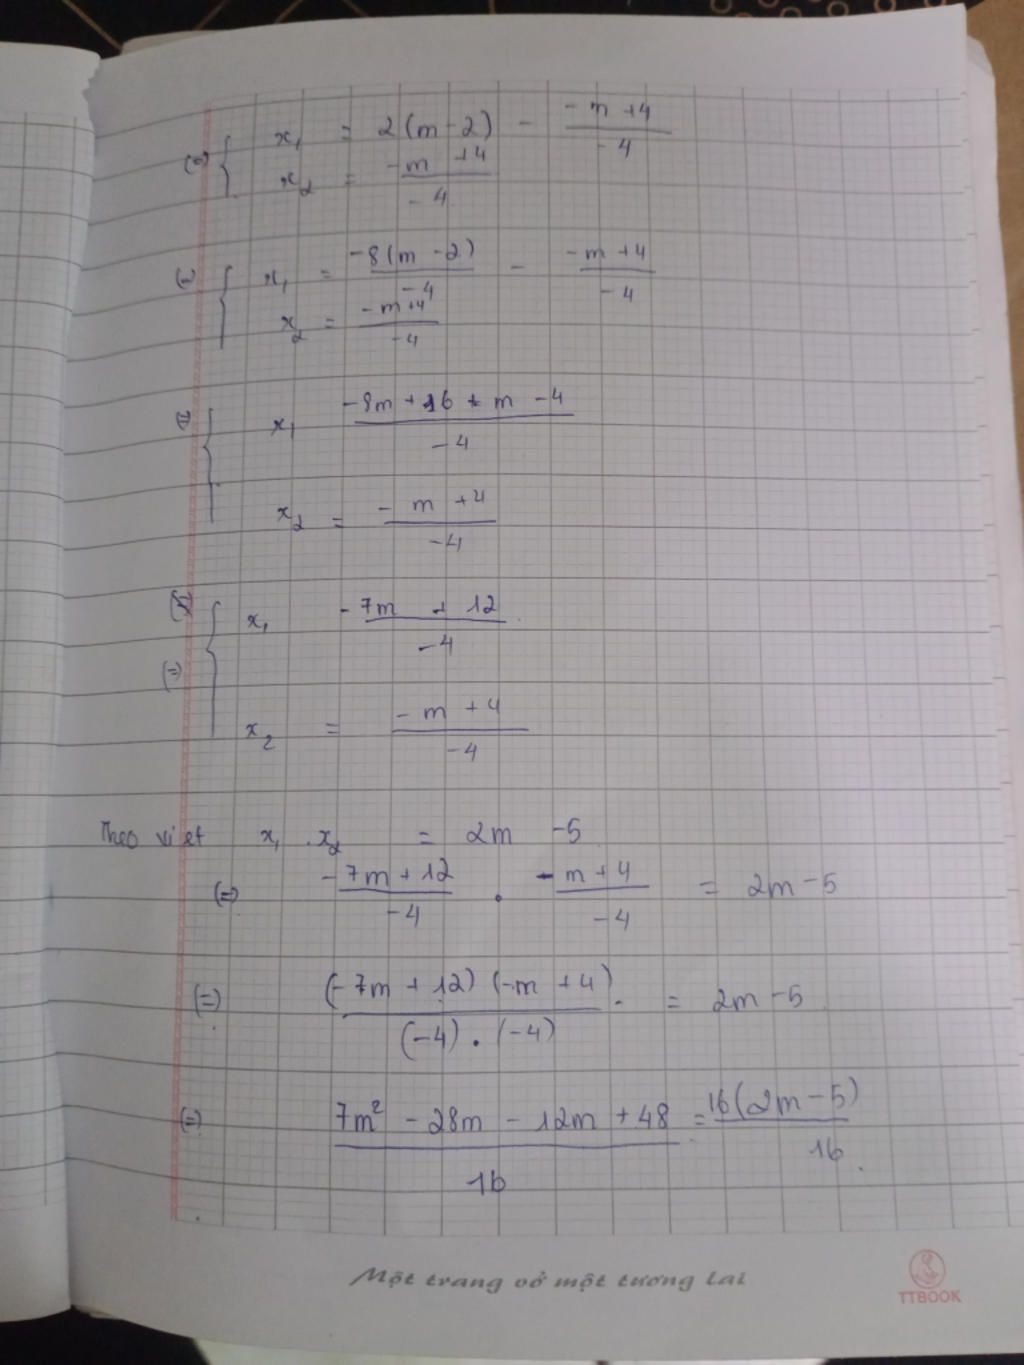 (=) { x₁ = 2(m-2) - (-m+4)/-4
x₂ = (-m+4)/-4
(=) { x₁ = -8(m-2)/-4 - (-m+4)/-4
x₂ = (-m+4)/-4
(=) { x₁ (-8m+16+m-4)/-4
x₂ = (-m+4)/-4
(=) { x₁ (-7m+12)/-4
x₂ = (-m+4)/-4
Theo viet x₁ . x₂ = 2m -5
(=) (-7m+12)/-4 . (-m+4)/-4 = 2m-5
(=) (-7m+12)(-m+4)/(-4).(-4) = 2m-5
(=) (7m² - 28m - 12m + 48)/16 = 16(2m-5)/16
Một trang vở một tương lai
TTBOOK